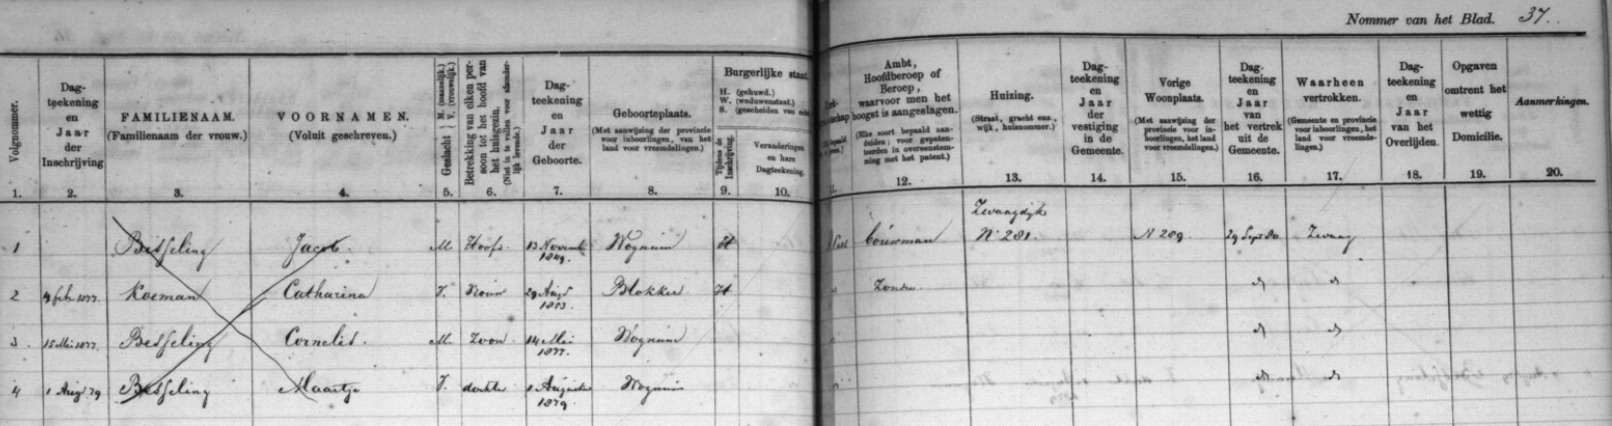 Nommer van het Blad. 37.
Volgnommer.
Dag-
teekening
en
Jaar
der
Inschrijving
FAMILIENAAM.
(Familienaam der vrouw.)
VOORNAMEN.
(Voluit geschreven.)
Geslacht M. (mannelijk.) V. (vrouwelijk.)
Betrekking van elken per-
soon tot het hoofd van
het huisgezin.
Dag-
teekening
en
Jaar
der
Geboorte.
Geboorteplaats.
(Met aanwijzing der provincie
voor inboorlingen, van het
land voor vreemdelingen.)
Burgerlijke staat.
H. (gehuwd.)
W. (weduwenstaat.)
S. (gescheiden van
Tijdens de
Inschrijving.
Veranderingen
en hare
Dagteekening.
Ambt,
Hoofdberoep of
Beroep,
waarvoor men het
hoogst is aangeslagen.
(Elke soort bepaald aan-
duiden; voor gepaten-
teerden in overeenstem-
ming met het patent.)
Huizing.
(Straat, gracht enz.,
wijk, huisnommer.)
Dag-
teekening
en
Jaar
der
vestiging
in de
Gemeente.
Vorige
Woonplaats.
(Met aanwijzing der
provincie voor in-
boorlingen, het land
voor vreemdelingen.)
Dag-
teekening
en
Jaar
van
het vertrek
uit de
Gemeente.
Waarheen
vertrokken.
(Gemeente en provincie
voor inboorlingen, het
land voor vreemde-
lingen.)
Dag-
teekening
en
Jaar
van het
Overlijden.
Opgaven
omtrent het
wettig
Domicilie.
Aanmerkingen.
1. 2. 3. 4. 5. 6. 7. 8. 9. 10. 12. 13. 14. 15. 16. 17. 18. 19. 20.
Zwaagdijk
1 Besseling Jacob. M Hoofd. 13 Novemb 1849. Wognum H Bouwman No 281. N 289 29 Sept 80 Zwaag
2 9 feb. 1877. Koeman Catharina V. Vrouw 29 Aug 1853 Blokker H Zonder d d
3. 15 Mei 1877. Besseling Cornelis. M. Zoon. 14 Mei 1877. Wognum d d
4 1 Aug 79 Besseling Maartje V. dochter 1 Augustus 1879. Wognum d d